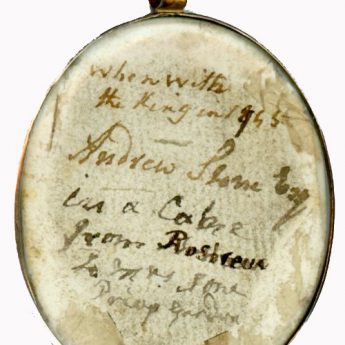 when with
the King in 1755
Andrew Stone Esq
in a Cabre
from
to Mrs Stone
Privy Garden